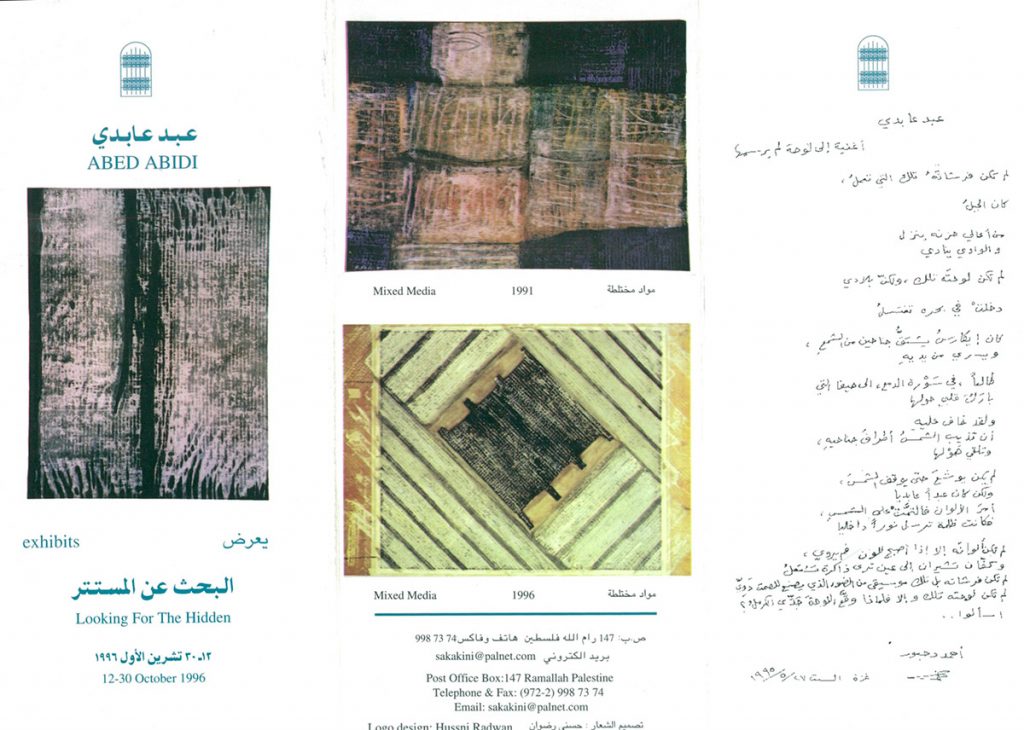 عبد عابدي
ABED ABIDI
exhibits يعرض
البحث عن المستتر
Looking For The Hidden
١٢-٣٠ تشرين الأول ١٩٩٦
12-30 October 1996
Mixed Media 1991 مواد مختلطة
Mixed Media 1996 مواد مختلطة
ص.ب: 147 رام الله فلسطين هاتف وفاكس 74 73 998
بريد الكتروني sakakini@palnet.com
Post Office Box:147 Ramallah Palestine
Telephone & Fax: (972-2) 998 73 74
Email: sakakini@palnet.com
Logo design: Hussni Radwan تصميم الشعار : حسني رضوان
عبد عابدي
أغنية إلى لوحة لم يرسمها
لم تكن فرشاتهُ تلك التي تعملُ،
كان الجبلُ
من أعالي حزنه ينزل
والوادي ينادي
لم تكن لوحته تلك، ولكنّ بلادي
دخلتْ في بحره تغتسلُ
كان إيكاروسُ يشتقُّ جناحين من الشمعِ،
ويسري من يديهِ
طالعاً، في سَوْرة الدمع، إلى حيفا التي
باركَ عليٌ حولها
ولقد خاف عليه
أن تذيب الشمسُ أطرافَ جناحيهِ،
وتلقي هَوْلها
لم يكن يوشعَ حتى يوقف الشمسَ،
ولكن كان عبداً عابديا
أمرَ الألوان فالتمّتْ على الشمسِ
فكانت ظلمة ترسل نوراً داخليا
لم تكن ألوانه إلا إذا أصبح للون فم يروي،
وكفّان تشيران إلى عين ترى ذاكرة تشتعلُ
لم تكن فرشاته بل تلك موسيقى من الضوء الذي يصنع للصمت دَويّ
لم تكن لوحته تلك وإلا فلماذا وقّع اللوحة جَدّي الكرملُ؟
اسألوا..
أحمد دحبور
غزة السبت ٢٧/٥/١٩٩٥